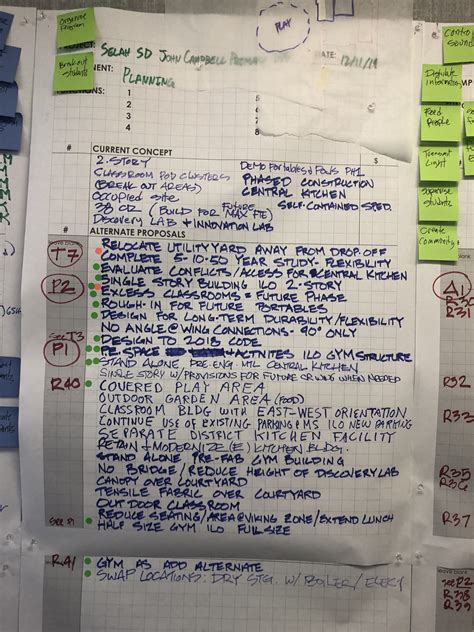 Organize
Program
PLAY
Control
Sound
Breakout
Students
PROJECT: SELAH SD JOHN CAMPBELL
DATE: 12/11/19
PLANNING
1
2
3
4
5
8
Distribute
Information
Feed
People
Transmit
Light
Supervise
Students
Create
Community
#
CURRENT CONCEPT
$
#
2-STORY
CLASSROOM POD CLUSTERS
(BREAK OUT AREAS)
Occupied site
38 CR (BUILD FOR FUTURE MAX FTE)
Discovery LAB + INNOVATION LAB
DEMO PORTABLES & PODS PH1
PHASED CONSTRUCTION
CENTRAL KITCHEN
SELF-CONTAINED SPED.
ALTERNATE PROPOSALS
RELOCATE UTILITY YARD AWAY FROM DROP-OFF
COMPLETE 5-10-50 YEAR STUDY- FLEXIBILITY
EVALUATE CONFLICTS/ACCESS FOR CENTRAL KITCHEN
SINGLE STORY BUILDING ILO 2-STORY
EXCESS CLASSROOMS = FUTURE PHASE
ROUGH-IN FOR FUTURE PORTABLES
DESIGN FOR LONG-TERM DURABILITY/FLEXIBILITY
NO ANGLE @ WING CONNECTIONS- 90° ONLY
DESIGN TO 2018 CODE
P.E. SPACE + ACTIVITIES ILO GYM STRUCTURE
STAND ALONE PRE ENG. MTL CENTRAL KITCHEN
SINGLE STORY W/PROVISIONS FOR FUTURE WHEN NEEDED
COVERED PLAY AREA
OUTDOOR GARDEN AREA (FOOD)
CLASSROOM BLDG WITH EAST-WEST ORIENTATION
CONTINUE USE OF EXISTING PARKING @ MS ILO NEW PARKING
SEPARATE DISTRICT KITCHEN FACILITY
RETAIN + MODERNIZE (E) KITCHEN BLDG.
STAND ALONE PRE-FAB GYM BUILDING
NO BRIDGE / REDUCE HEIGHT OF DISCOVERY LAB
CANOPY OVER COURTYARD
TENSILE FABRIC OVER COURTYARD
OUT DOOR CLASSROOM
REDUCE SEATING/AREA @ VIKING ZONE/EXTEND LUNCH
HALF SIZE GYM ILO FULL SIZE
GYM AS ADD ALTERNATE
SWAP LOCATIONS: DRY STG. W/ BOILER/ELEC
T7
P2
P1
R40
R41
Δ1
R31
R35
R38
R37
R38
R39